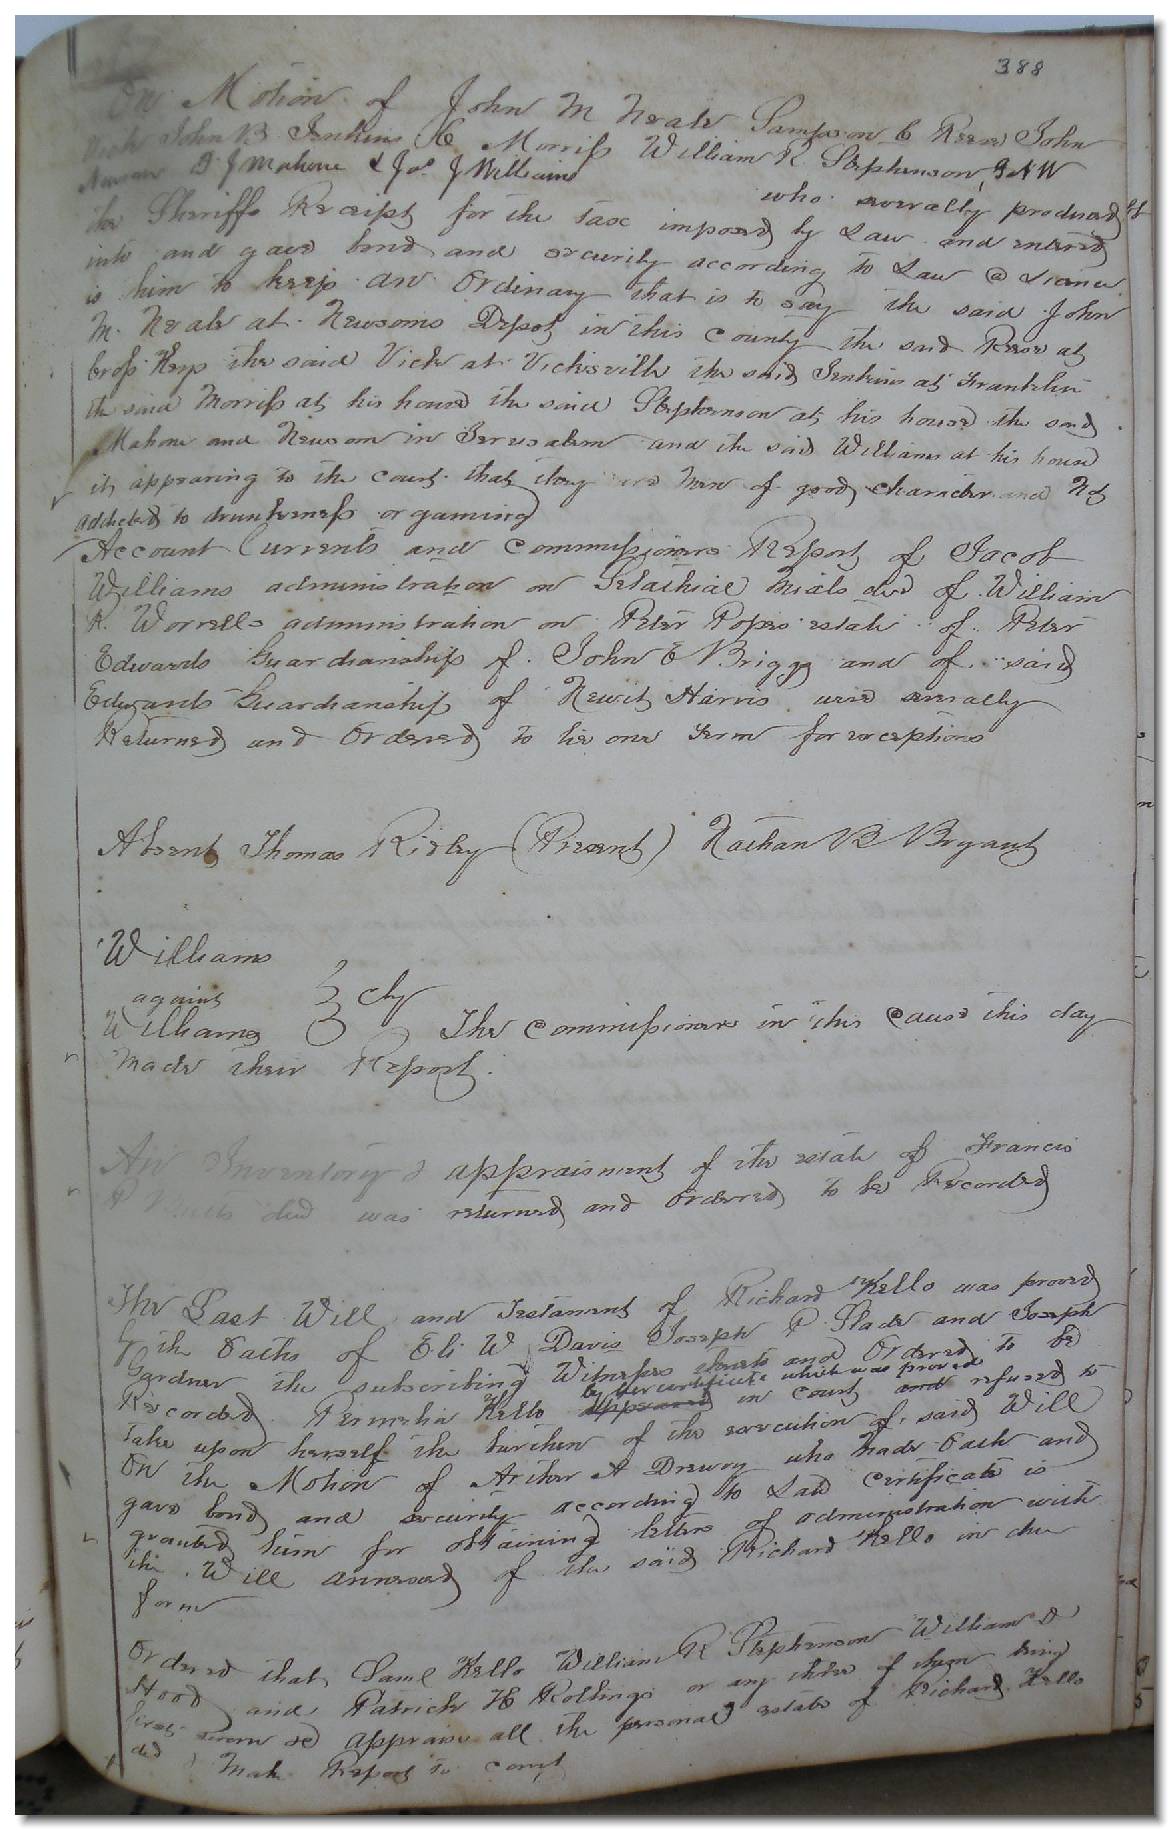 388
On Motion of John M Neale Sampson C Reese John
Vick John B. Jenkins H C Morriss William R Stephenson, J & W
Newsom T J Mahone & Jos. J Williams
who severally produced
the Sheriffs Receipt for the tax imposed by Law and entered
into and gave bond and security according to Law a License
is him to keep an Ordinary that is to say the said John
M. Neale at Newsoms Depot in this County the said Reese at
Cross Keys the said Vick at Vicksville the said Jenkins at Franklin
the said Morriss at his house the said Stephenson at his house the said
Mahone and Newsom in Jerusalem and the said Williams at his house
it appearing to the court that they are Men of good character and Not
addicted to drunkenness or gaming
Account Currents and Commissioners Report of Jacob
Williams administration on Selathiel decd of William
R. Worrells administration on Peter Popes estate of Peter
Edwards Guardianship of John E Briggs and of said
Edwards Guardianship of Newit Harris were severally
Returned and Ordered to lie one Term for exceptions
Absent Thomas Ridley (Present) Nathan B Bryant
Williams
against
Chy
Williams The Commissioners in this Cause this day
Made their Report.
An Inventory & appraisment of the estate of Francis
P decd was returned and Ordered to be Recorded
The Last Will and Testament of Richard Kello was proved
by the Oaths of Eli W Davis Joseph P Slade and Joseph
Gardner the subscribing Witnesses thereto and Ordered to be
by her certificate which was proved
Recorded Permelia Kello appeared in Court and refused to
Take upon herself the burthen of the execution of said Will
On the Motion of Arther A Drewry who Made Oath and
gave bond and security according to Law certificate is
granted him for obtaining letters of administration with
the Will annexed of the said Richard Kello in due
form
Ordered that Saml Kello William R Stephenson William D
Hood and Patrick H Rollings or any three of them being
first sworn do appraise all the personal estate of Richard Kello
decd & Make Report to court